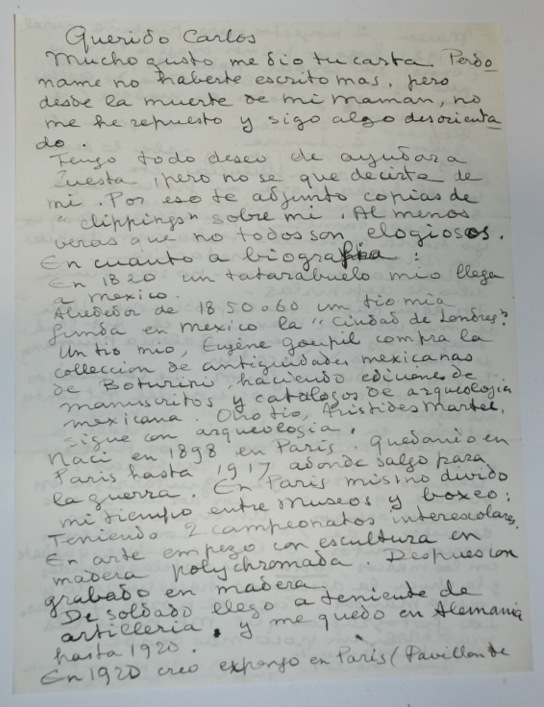 Querido Carlos
Mucho gusto me dio tu carta. Perdo
name no haberte escrito mas, pero
desde la muerte de mi maman, no
me he repuesto y sigo algo desorienta
do.
Tengo todo deseo de ayudar a
Zuesta, pero no se que decirte de
mi. Por eso te adjunto copias de
"clippings" sobre mi. Al menos
veras que no todos son elogiosos.
En cuanto a biografia:
En 1820 un tatarabuelo mio llega
a mexico.
Alrededor de 1850 o 60 un tio mia
funda en mexico la "Ciudad de Londres".
Un tio mio, Eugène Goupil compra la
colleccion de antiguidades mexicanas
de Boturini, haciendo ediciones de
manuscritos y catalogos de arqueologia
mexicana. Otro tio, Aristides Martel,
sigue con arqueologia.
Naci en 1898 en Paris. quedanio en
Paris hasta 1917 adonde salgo para
la guerra. En Paris mismo divido
mi tiempo entre Museos y boxeo;
Teniendo 2 campeonatos interescolares.
En arte empezo con escultura en
madera polychromada. Despues con
grabado en madera
De soldado llego a teniente de
artilleria, y me quedo en Alemania
hasta 1920.
En 1920 creo expongo en Paris (Pavillon de